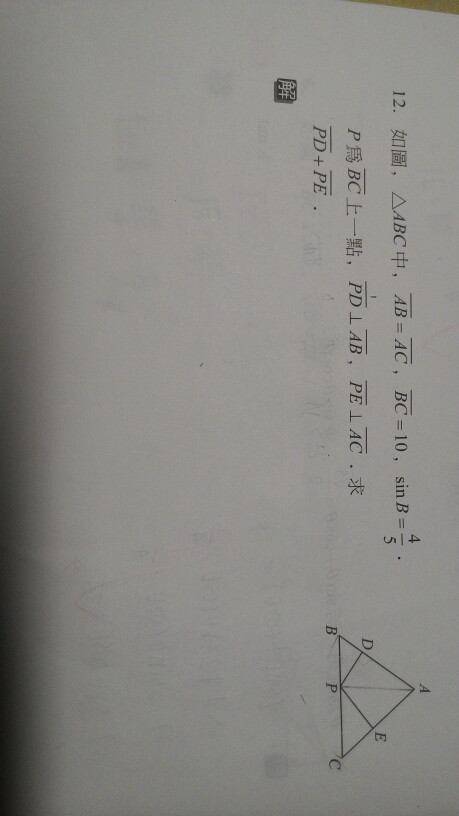 12. 如圖，△ABC中，AB=AC，BC=10，sin B=4/5．
P為BC上一點，PD⊥AB，PE⊥AC．求
PD+PE．
解
A
D
E
B
P
C